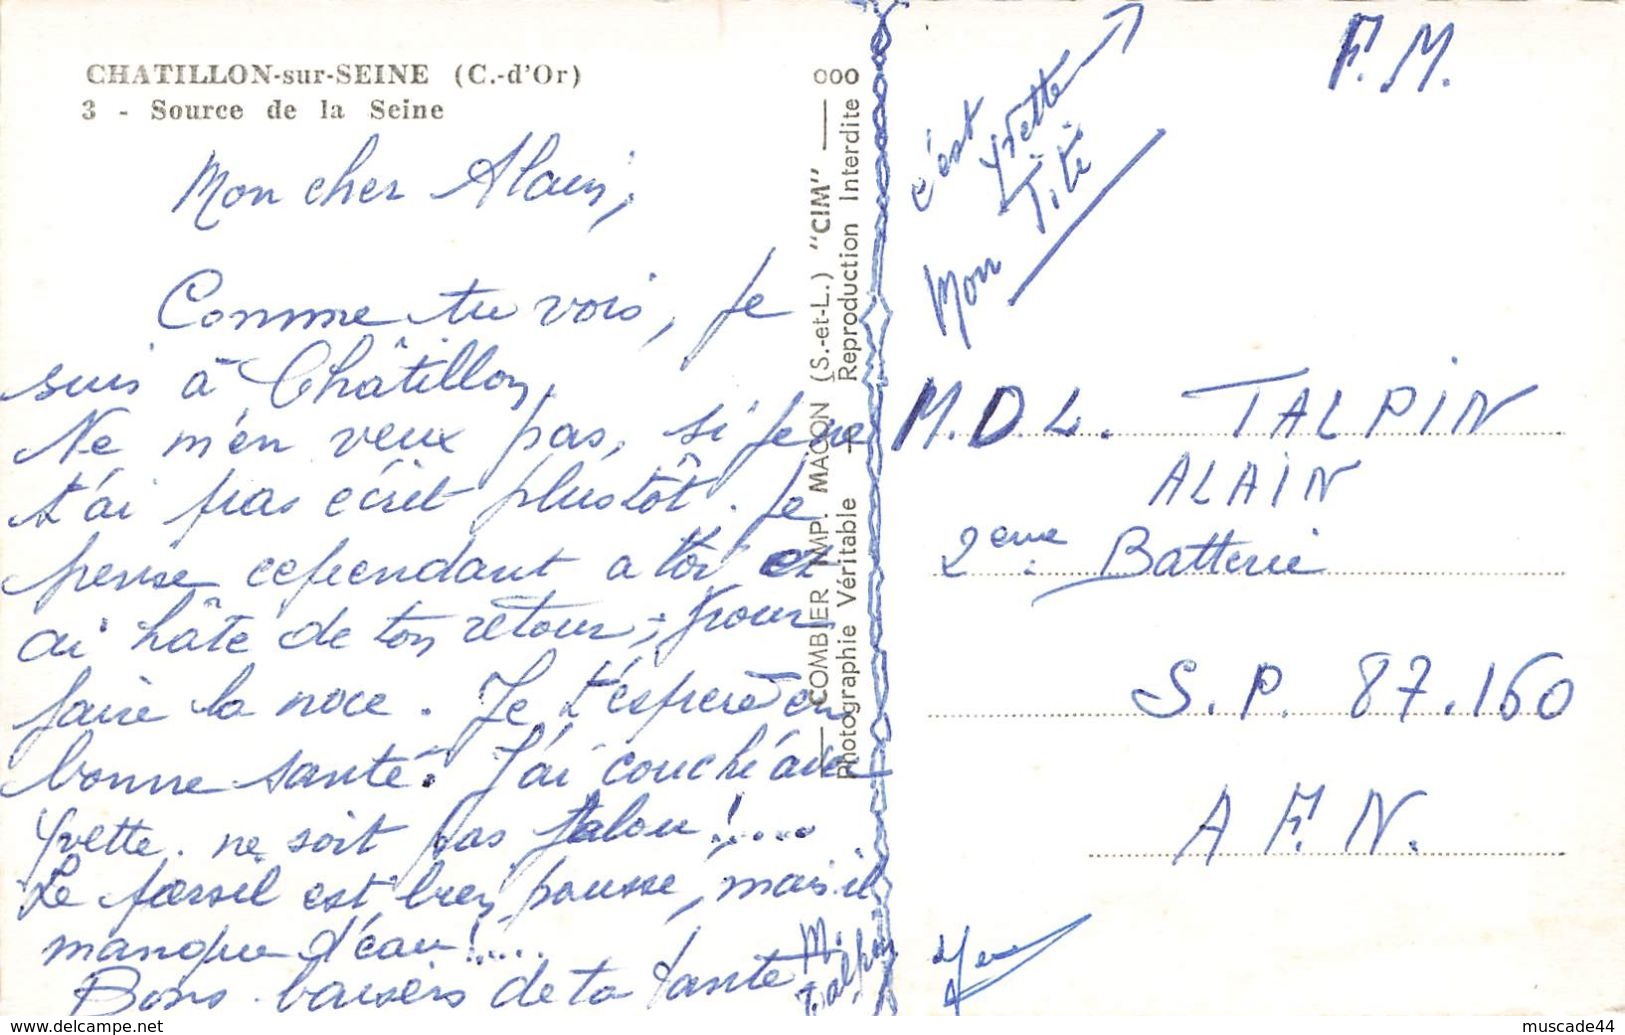 CHATILLON-sur-SEINE (C.-d'Or)
3 - Source de la Seine
Mon cher Alain,
Comme tu vois, je
suis à Châtillon,
Ne m'en veux pas, si je ne
t'ai pas écrit plustôt. Je
pense cependant a toi et
ai hâte de ton retour, pour
faire la noce. Je t'espère en
bonne santé. J'ai couché avec
Yvette. ne soit pas jalou!....
Le persil est bien pousse, mais il
manque d'eau!....
Bons baisers de ta tante
M. Talpin
COMBIER IMP. MACON (S.-et-L.) "CIM"
Photographie Véritable - Reproduction Interdite
000
c'est
Yvette
Mon Titi
F.M.
M.D.L. TALPIN
ALAIN
2eme Batterie
S.P. 87.160
A F.N.
www.delcampe.net
muscade44